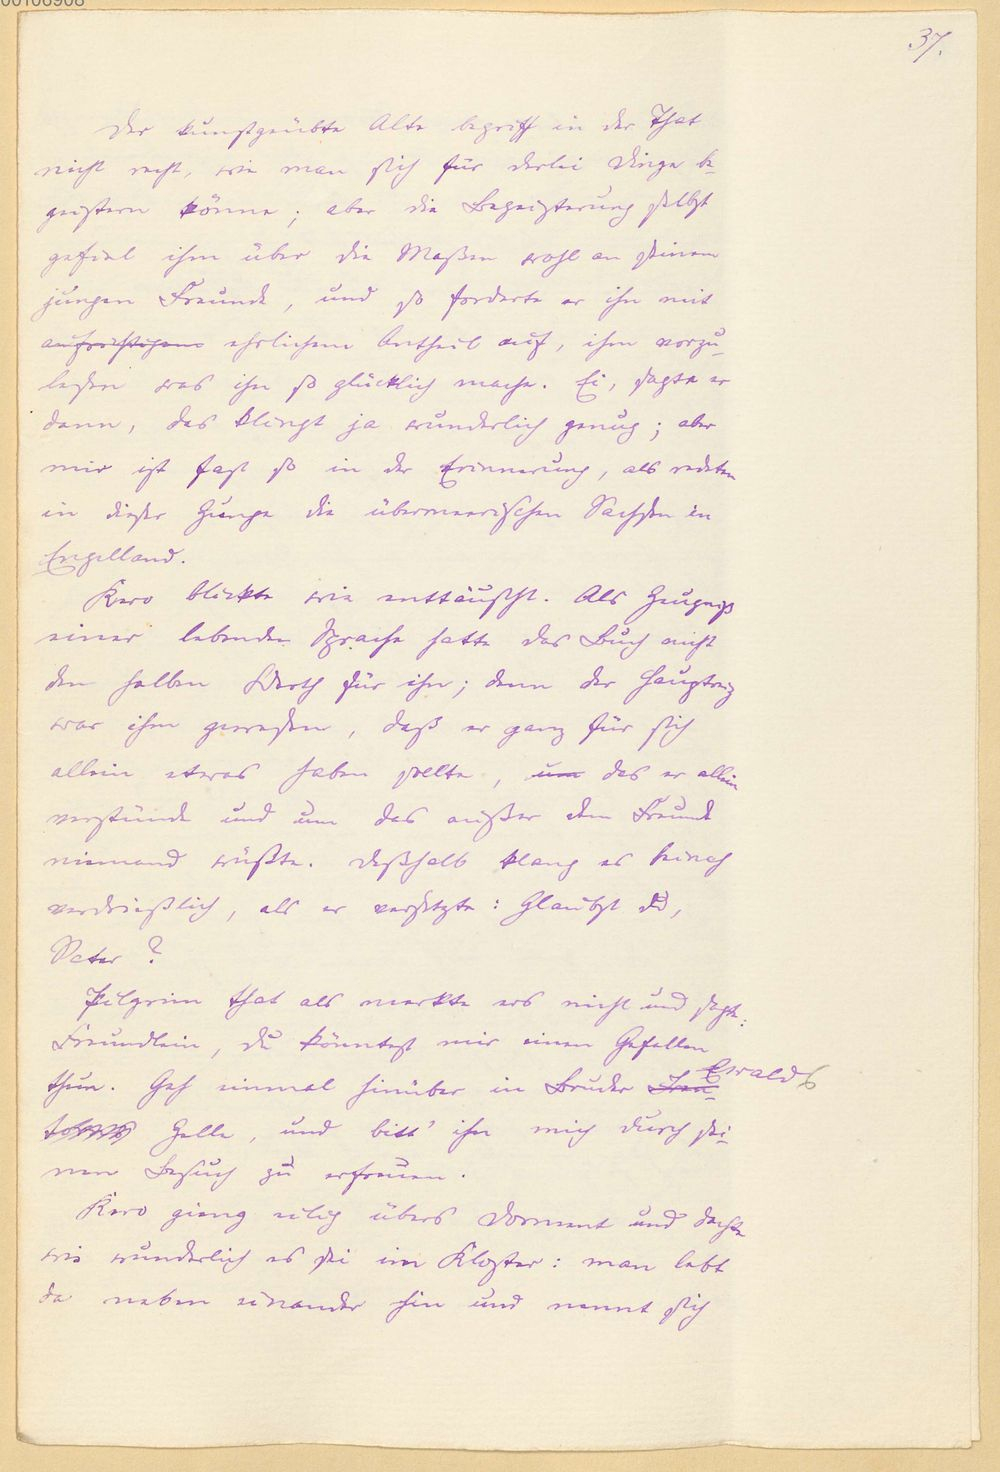 00106908
37.
Der kunstgeübte Alte begriff in der That
nicht recht, wie man sich für derlei Dinge be-
geistern könne; aber die Begeisterung selbst
gefiel ihm über die Maßen wohl an seinem
jungen Freunde, und so forderte er ihn mit
aufrichtigem ehrlichem Antheil auf, ihm vorzu-
lesen was ihn so glücklich mache. Ei, sagte er
dann, das klingt ja wunderlich genug; aber
mir ist fast so in der Erinnerung, als redeten
in dieser Zunge die übermeerischen Sachsen in
Engelland.
Kero blickte wie enttäuscht. Als Zeugniß
einer lebenden Sprache hatte das Buch nicht
den halben Werth für ihn; denn der Hauptreiz
war ihm gewesen, daß er ganz für sich
allein etwas haben sollte, um das er allein
verstünde und um das außer dem Freunde
niemand wüßte. Deßhalb klang es beinah
verdrießlich, als er versetzte: Glaubst du,
Vater?
Pilgrim that als merkte ers nicht und sagte:
Freundlein, du könntest mir einen Gefallen
thun. Geh einmal hinüber in Bruder Ewalds
Zelle, und bitt' ihn mich durch sei-
nen Besuch zu erfreuen.
Kero gieng eilig übers Dorment und dachte
wie wunderlich es sei im Kloster: man lebt
da neben einander hin und nennt sich